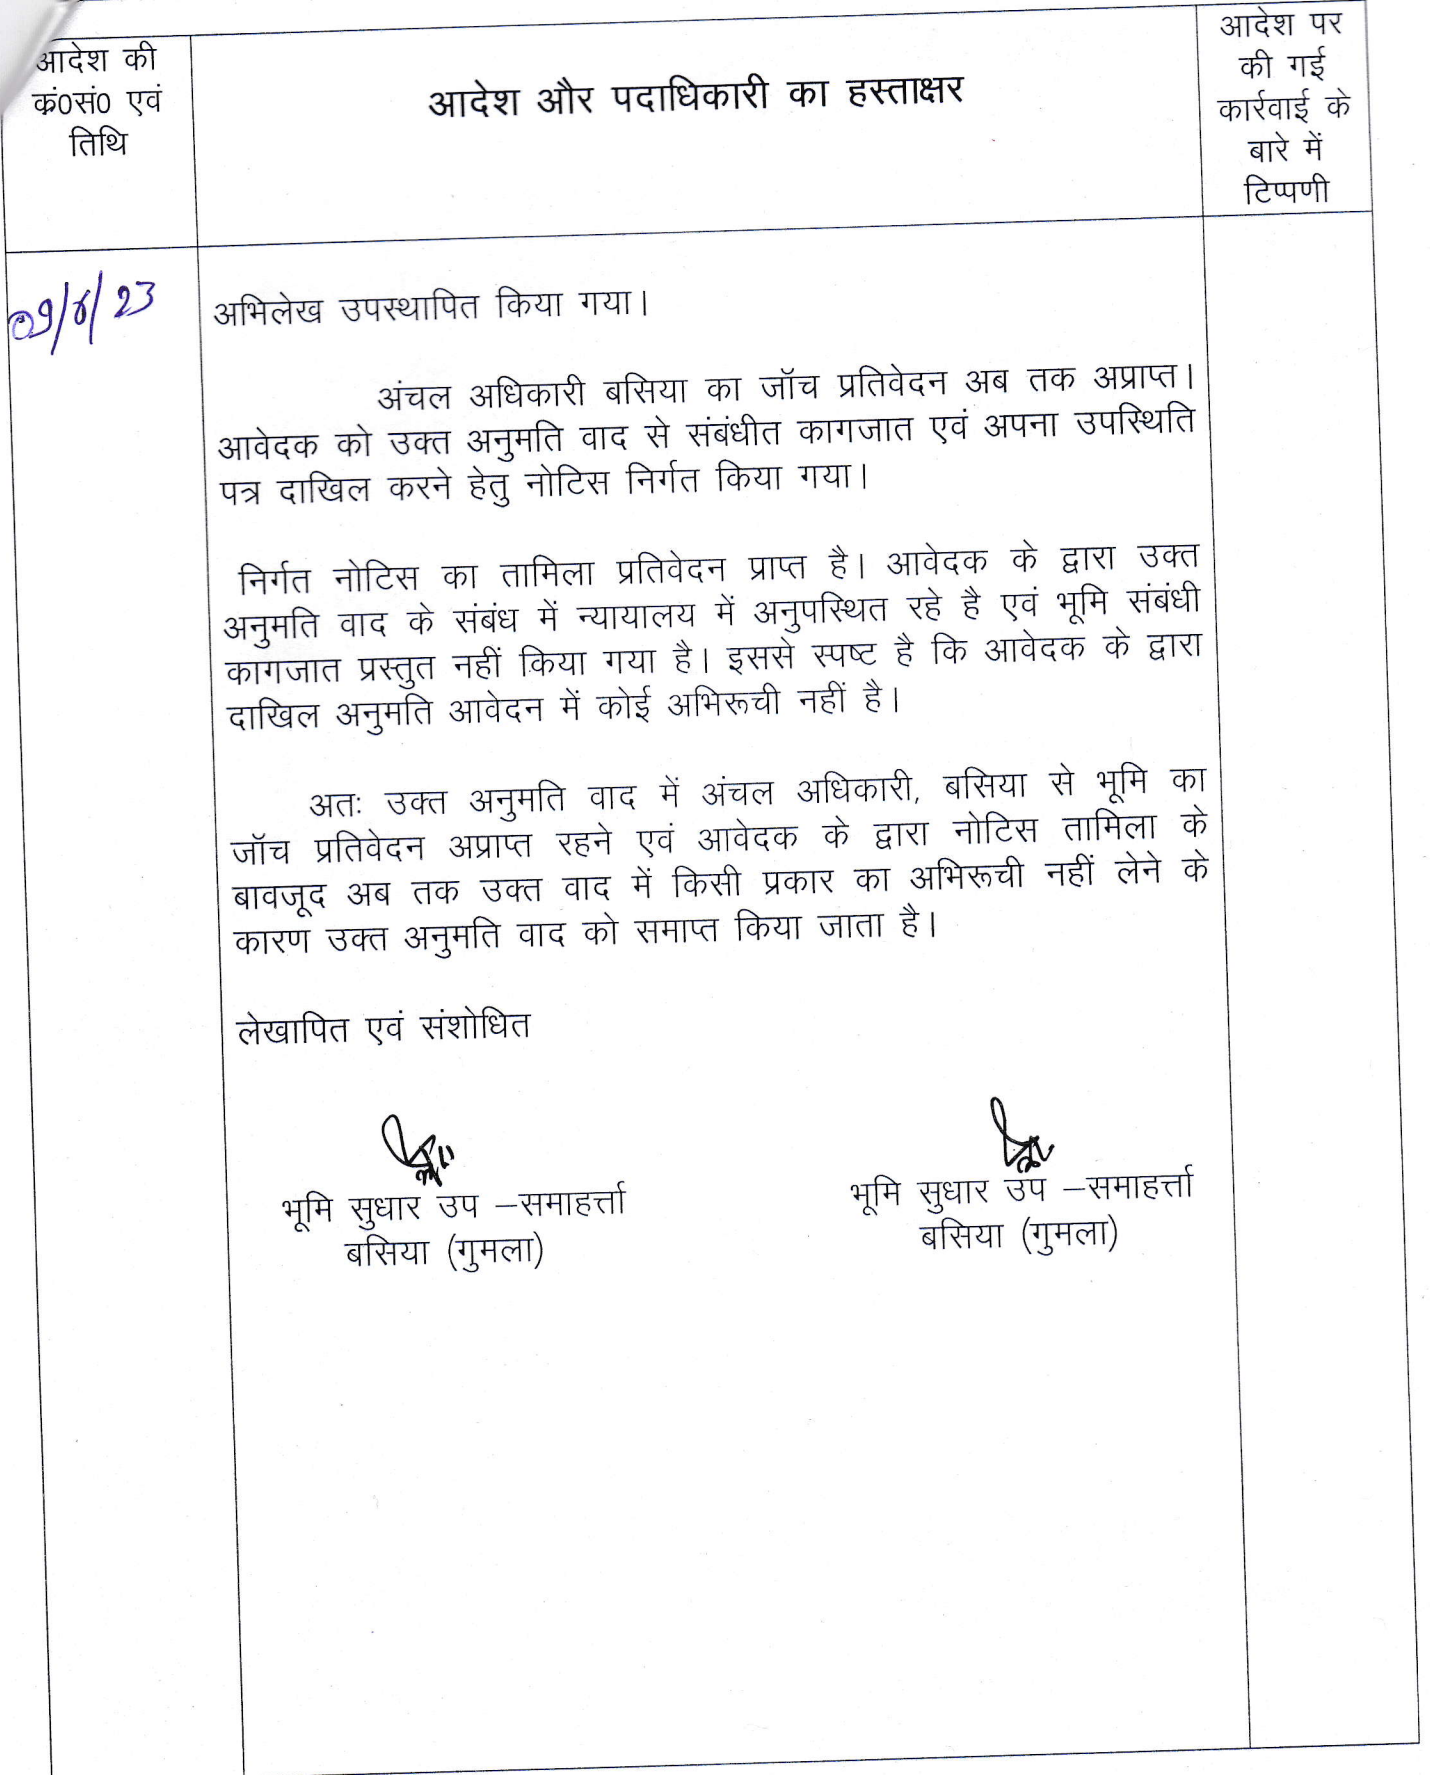 आदेश की
कं0सं0 एवं
तिथि
आदेश और पदाधिकारी का हस्ताक्षर
आदेश पर
की गई
कार्रवाई के
बारे में
टिप्पणी
09/6/23
अभिलेख उपस्थापित किया गया।
अंचल अधिकारी बसिया का जॉच प्रतिवेदन अब तक अप्राप्त।
आवेदक को उक्त अनुमति वाद से संबंधीत कागजात एवं अपना उपस्थिति
पत्र दाखिल करने हेतु नोटिस निर्गत किया गया।
निर्गत नोटिस का तामिला प्रतिवेदन प्राप्त है। आवेदक के द्वारा उक्त
अनुमति वाद के संबंध में न्यायालय में अनुपस्थित रहे है एवं भूमि संबंधी
कागजात प्रस्तुत नहीं किया गया है। इससे स्पष्ट है कि आवेदक के द्वारा
दाखिल अनुमति आवेदन में कोई अभिरूची नहीं है।
अतः उक्त अनुमति वाद में अंचल अधिकारी, बसिया से भूमि का
जॉच प्रतिवेदन अप्राप्त रहने एवं आवेदक के द्वारा नोटिस तामिला के
बावजूद अब तक उक्त वाद में किसी प्रकार का अभिरूची नहीं लेने के
कारण उक्त अनुमति वाद को समाप्त किया जाता है।
लेखापित एवं संशोधित
भूमि सुधार उप –समाहर्त्ता
बसिया (गुमला)
भूमि सुधार उप –समाहर्त्ता
बसिया (गुमला)